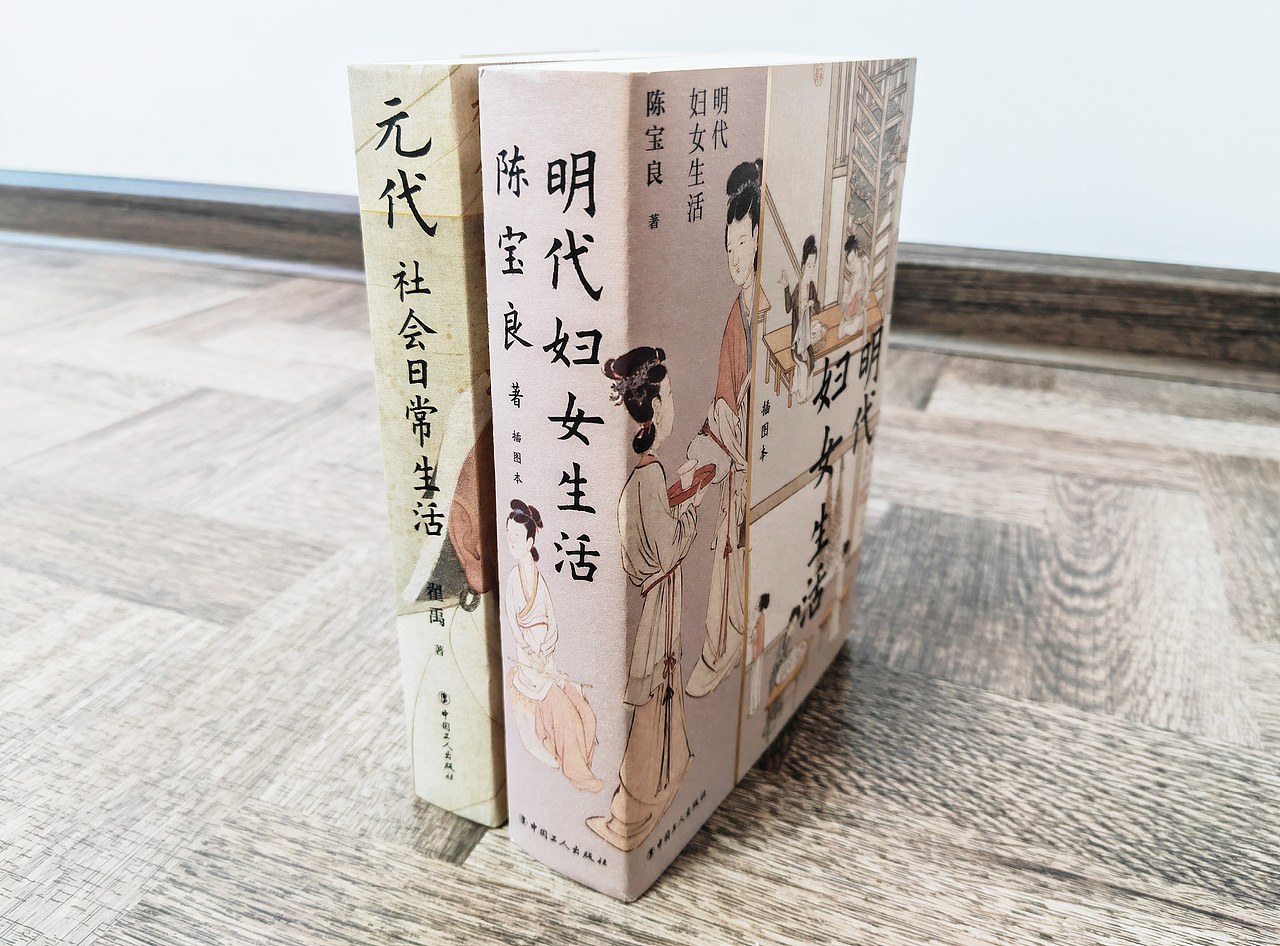 元代
社会日常生活
翟禹 著
中国工人出版社
明代妇女生活
陈宝良 著
插图本
中国工人出版社
明代
妇女生活
陈宝良 著
明代
妇女生活
插图本
中国工人出版社